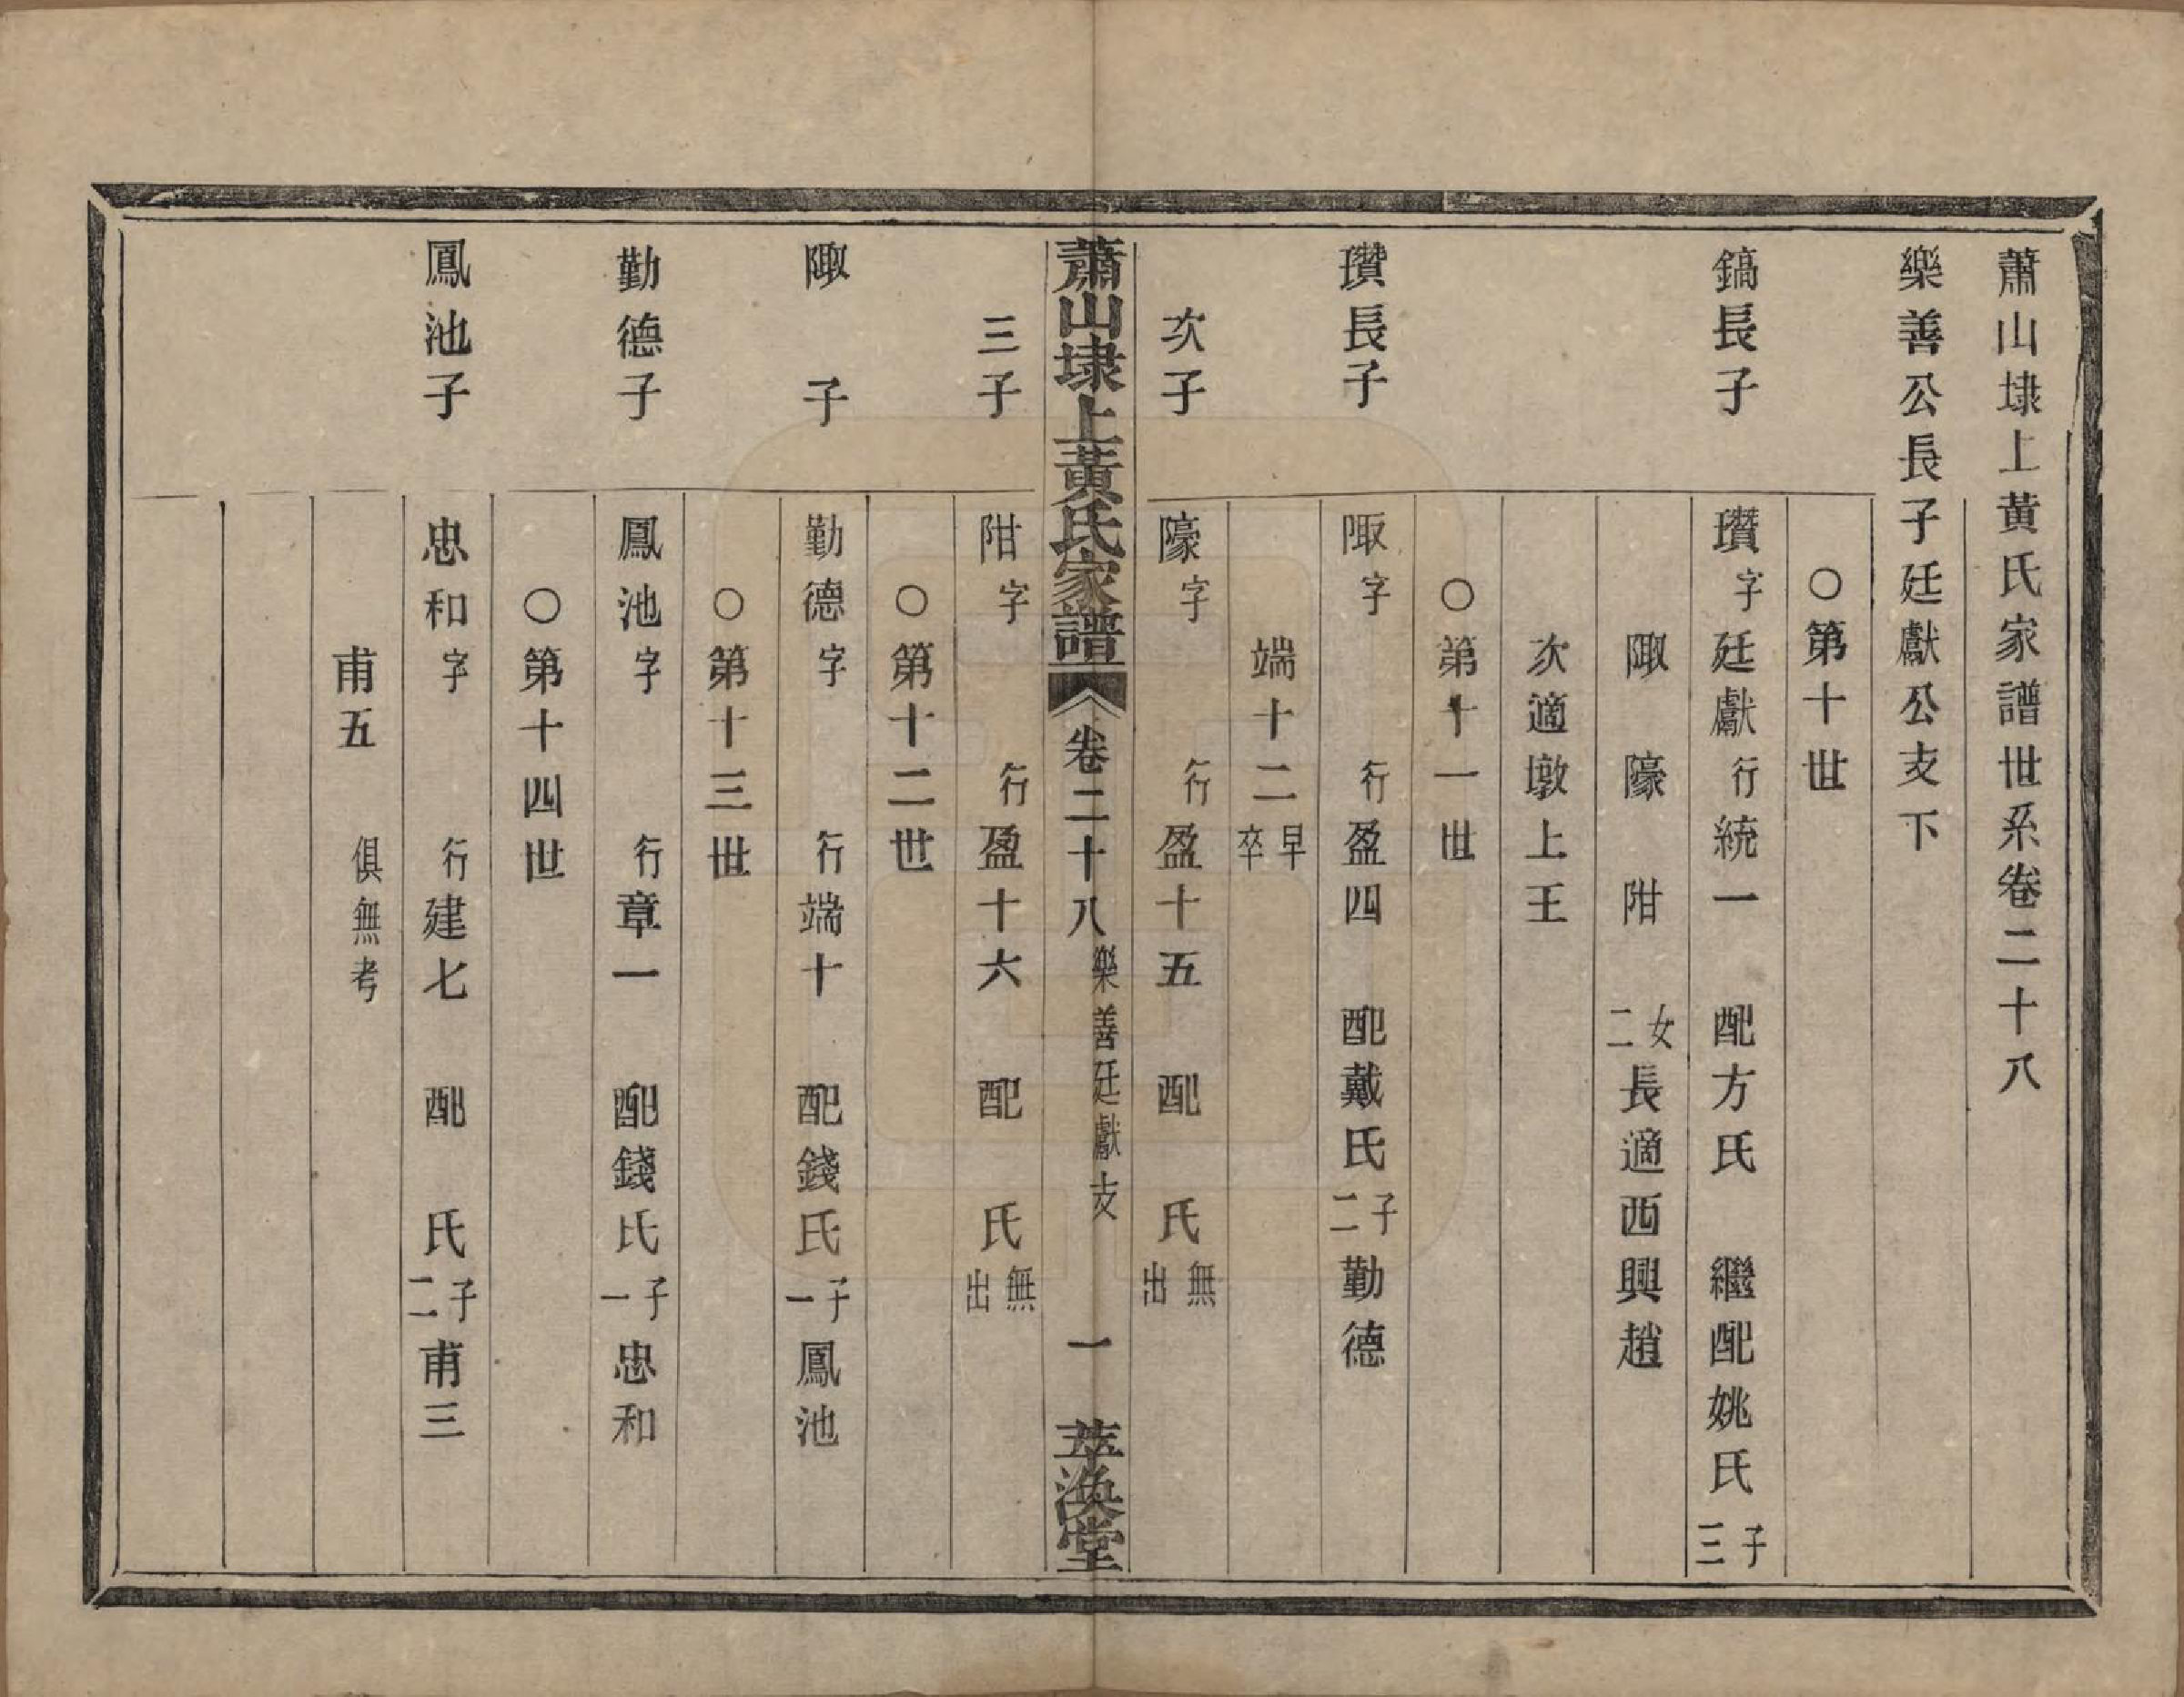 蕭山埭上黄氏家譜世系卷二十八
樂善公長子廷獻公支下
○第十世
鎬長子 瓚字廷獻行統一 配方氏 繼配姚氏子三
陬 䧚 䧁女二長適西興趙
次適墩上王
○第十一世
瓚長子 陬字 行盈四 配戴氏子二勤德
端十二早卒
次子 䧚字 行盈十五 配 氏無出
蕭山埭上黄氏家譜 卷二十八 樂善廷獻支 一 萃渙堂
三子 䧁字 行盈十六 配 氏無出
○第十二世
陬 子 勤德字 行端十 配錢氏子一鳳池
○第十三世
勤德子 鳳池字 行章一 配錢氏子一忠和
○第十四世
鳳池子 忠和字 行建七 配 氏子二甫三
甫五 俱無考